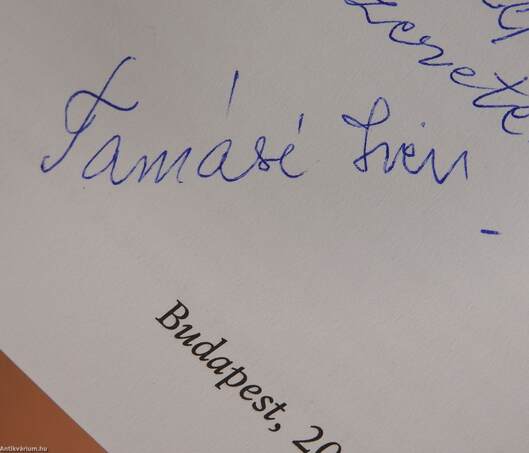 szerete
Tamásé
Budapest, 20
Antikvárium.hu